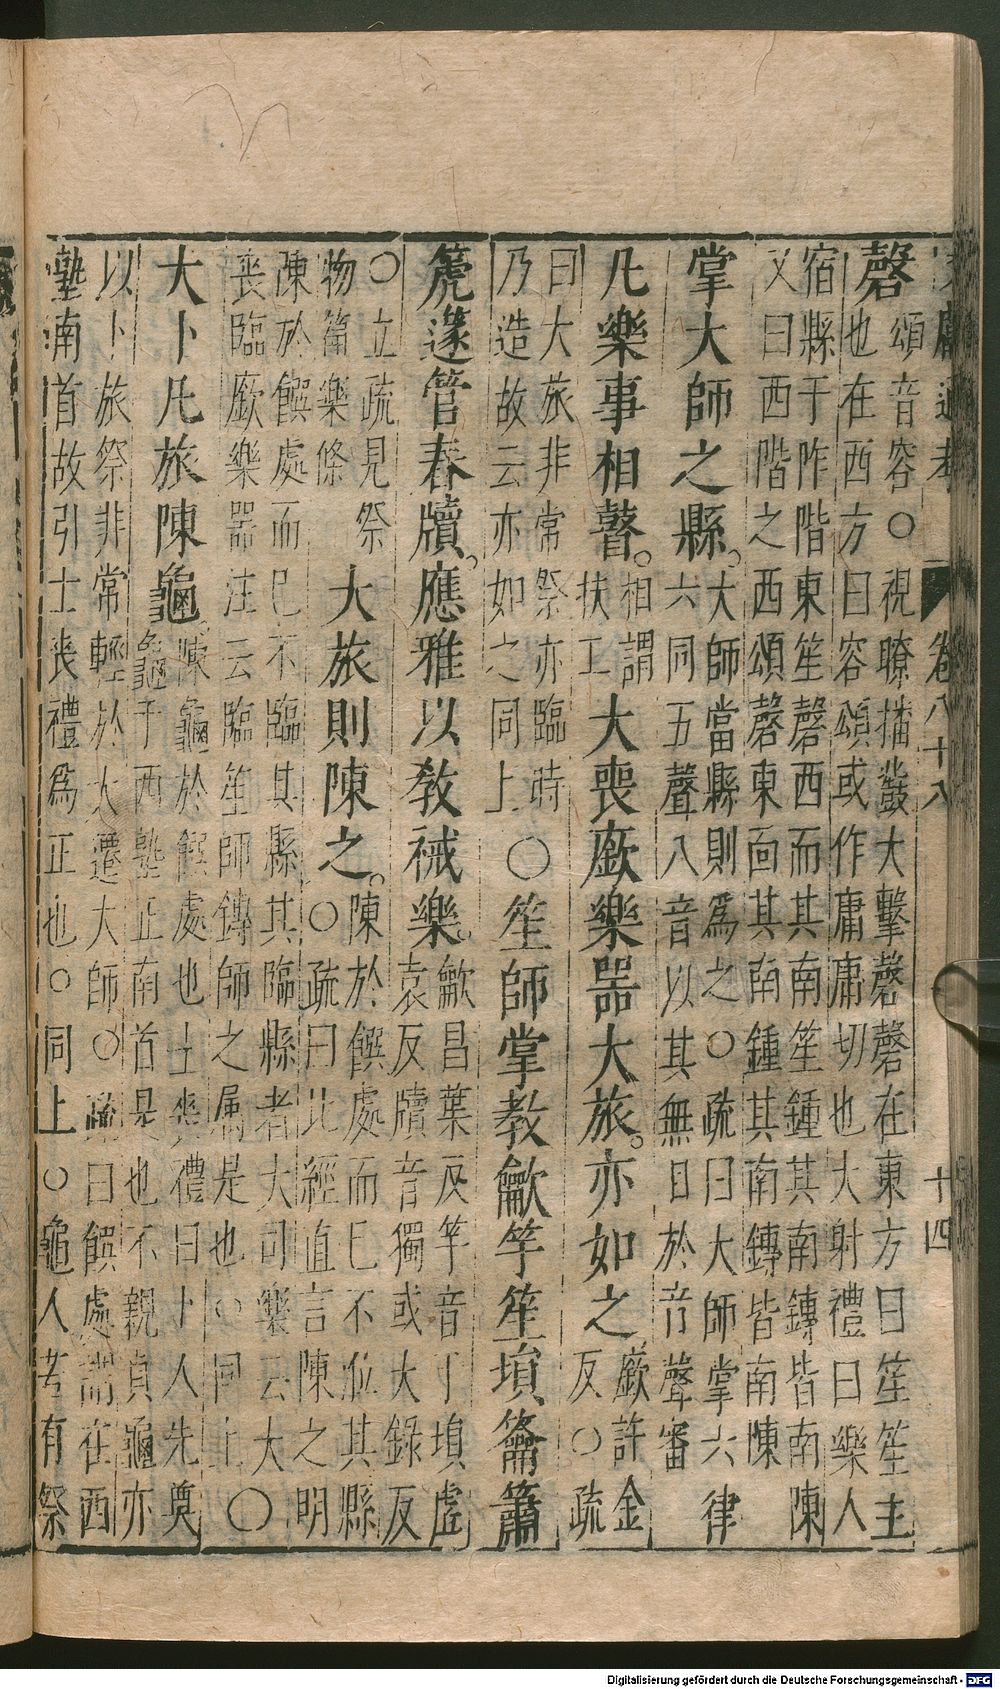 文獻通考 卷八十八 十四
磬
頌音容○視瞭播鼗大擊磬磬在東方曰笙笙主
也在西方曰容頌或作庸庸切也大射禮曰樂人
宿縣于阼階東笙磬西而其南笙鍾其南鎛皆南陳
又曰西階之西頌磬東面其南鍾其南鎛皆南陳
掌大師之縣。
大師當縣則爲之○疏曰大師掌六律
六同五聲八音以其無目於音聲審
凡樂事相瞽。
相謂
扶工
大喪廞樂器大旅。亦如之
廞許金
反○疏
曰大旅非常祭亦臨時
乃造故云亦如之同上
○笙師掌教龡竽笙塤籥簫
篪篴管舂牘。應雅以敎祴樂。
龡昌葉反竽音于塤虛
袁反牘音獨或大錄反
○立疏見祭
物籥樂條
大旅則陳之。
陳於饌處而已不涖其縣
○疏曰此經直言陳之明
陳於饌處而已不臨其縣其臨縣者大司樂云大
喪臨廞樂器注云臨笙師鎛師之屬是也○同上○
大卜凡旅陳龜。
陳龜於饌處也士喪禮曰卜人先奠
龜于西塾正南首是也不親貞龜亦
以卜旅祭非常輕於大遷大師○疏曰饌處謂在西
塾南首故引士喪禮爲正也○同上○龜人若有祭
Digitalisierung gefördert durch die Deutsche Forschungsgemeinschaft - DFG